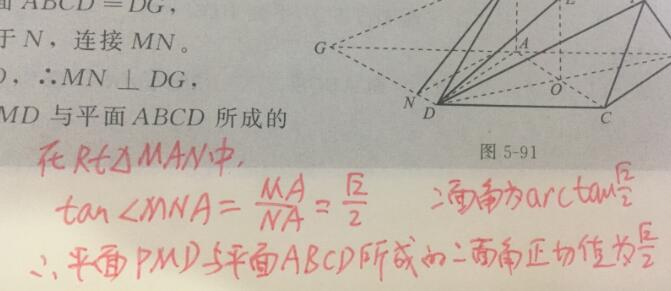 面 ABCD = DG，
于 N，连接 MN。
∴MN ⊥ DG，
MD 与平面 ABCD 所成的
G
A
N
D
O
C
图 5-91
在Rt△MAN中，
tan∠MNA = MA/NA = √2/2
二面角为arctan √2/2
∴平面PMD与平面ABCD所成的二面角正切值为√2/2